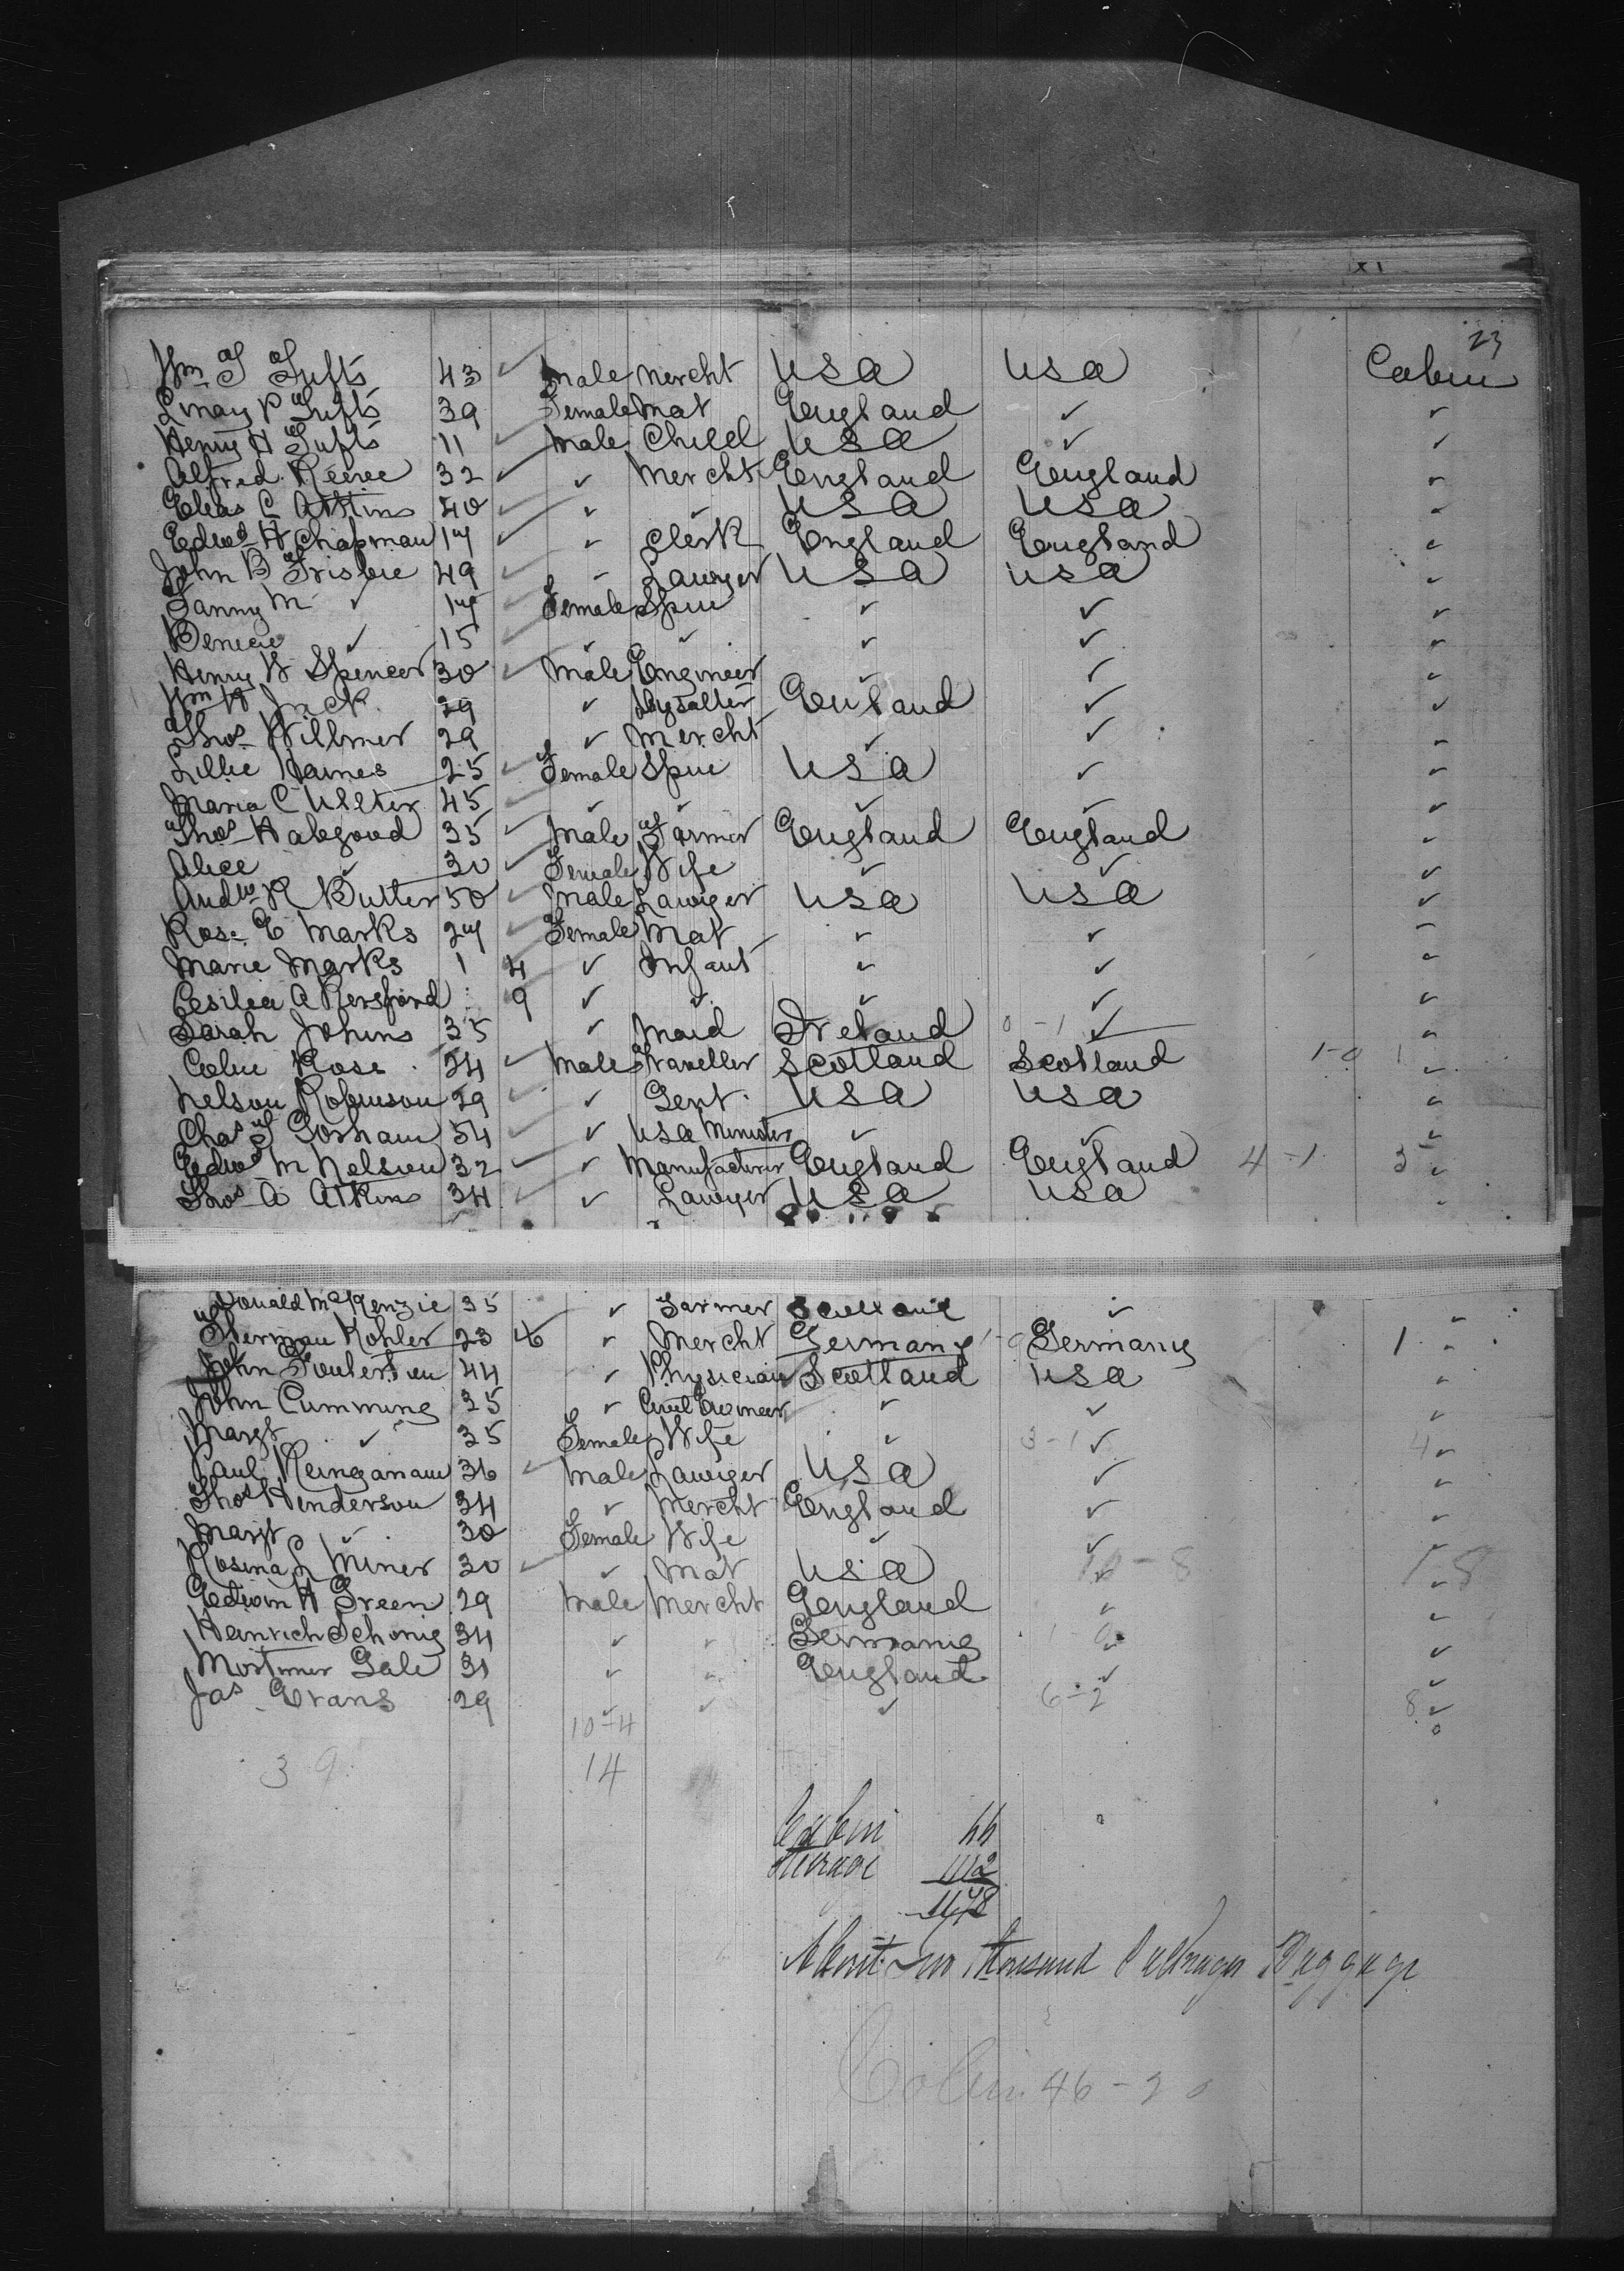 23
Wm T Tufts 43 ✓ Male Mercht USA USA Cabin
Emay P Tufts 39 Female Mat England ✓ ✓
Henry H Tufts 11 ✓ Male Child USA ✓ ✓
Alfred Reeve 32 ✓ ✓ Mercht England England ✓
Elias C Atkins 40 ✓ ✓ ✓ USA USA ✓
Edwd H Chapman 17 ✓ ✓ Clerk England England ✓
John B Frisbie 49 ✓ ✓ Lawyer USA USA ✓
Fanny M ✓ 17 ✓ Female Spin ✓ ✓ ✓
Benicia ✓ 15 ✓ ✓ ✓ ✓ ✓ ✓
Henry W Spencer 30 ✓ Male Engineer ✓ ✓ ✓
Wm H Jack 29 ✓ Drysalter England ✓ ✓
Thos Willmer 29 ✓ Mercht ✓ ✓ ✓
Lillie Haines 25 ✓ Female Spin USA ✓ ✓
Maria C 45 ✓ ✓ ✓ ✓ ✓ ✓
Thos Habgood 35 ✓ Male Farmer England England ✓
Alice ✓ 30 ✓ Female Wife ✓ ✓ ✓
Andw R Butter 50 ✓ Male Lawyer USA USA ✓
Rose E Marks 27 ✓ Female Mat ✓ ✓ ✓
Marie Marks 1 4 ✓ Infant ✓ ✓ ✓
Cesilia A 9 ✓ ✓ ✓ ✓ ✓
Sarah Johns 35 ✓ Maid Ireland 0-1 ✓ ✓
Colin Rose 24 ✓ Male Traveller Scotland Scotland 1-0 1 ✓
Nelson Robinson 29 ✓ ✓ Gent. USA USA ✓
Chas T Gorham 54 ✓ ✓ USA Minister ✓ ✓ ✓
Edwd M Nelson 32 ✓ ✓ Manufacturer England England 4-1 5 ✓
Thos A Atkins 34 ✓ ✓ Lawyer USA USA ✓
Donald McKenzie 35 ✓ Farmer Scotland ✓ ✓
Herman Kohler 23 ✓ Mercht Germany 1-0 Germany 1 ✓
John 44 ✓ Physician Scotland USA ✓
John Cumming 35 ✓ Civil Engineer ✓ ✓ ✓
Margt ✓ 35 Female Wife ✓ 3-1 ✓ 4 ✓
Paul Reinganam 36 ✓ Male Lawyer USA ✓ ✓
Thos Henderson 34 ✓ Mercht England ✓ ✓
Margt ✓ 30 Female Wife ✓ ✓ ✓
Rosina L Miner 30 ✓ ✓ Mat USA ✓ ✓
Edwin H Green 29 Male Mercht England ✓ ✓
Heinrich Schonig 34 ✓ ✓ Germany 1-0 ✓ ✓
Mortimer Gale 31 ✓ ✓ England ✓ ✓
Jas Evans 29 ✓ ✓ ✓ 6-2 8 ✓
10-4
39 14
Cabin 66
Steerage 112
178
About Two Thousand Packages Baggage
Cabin 46-20